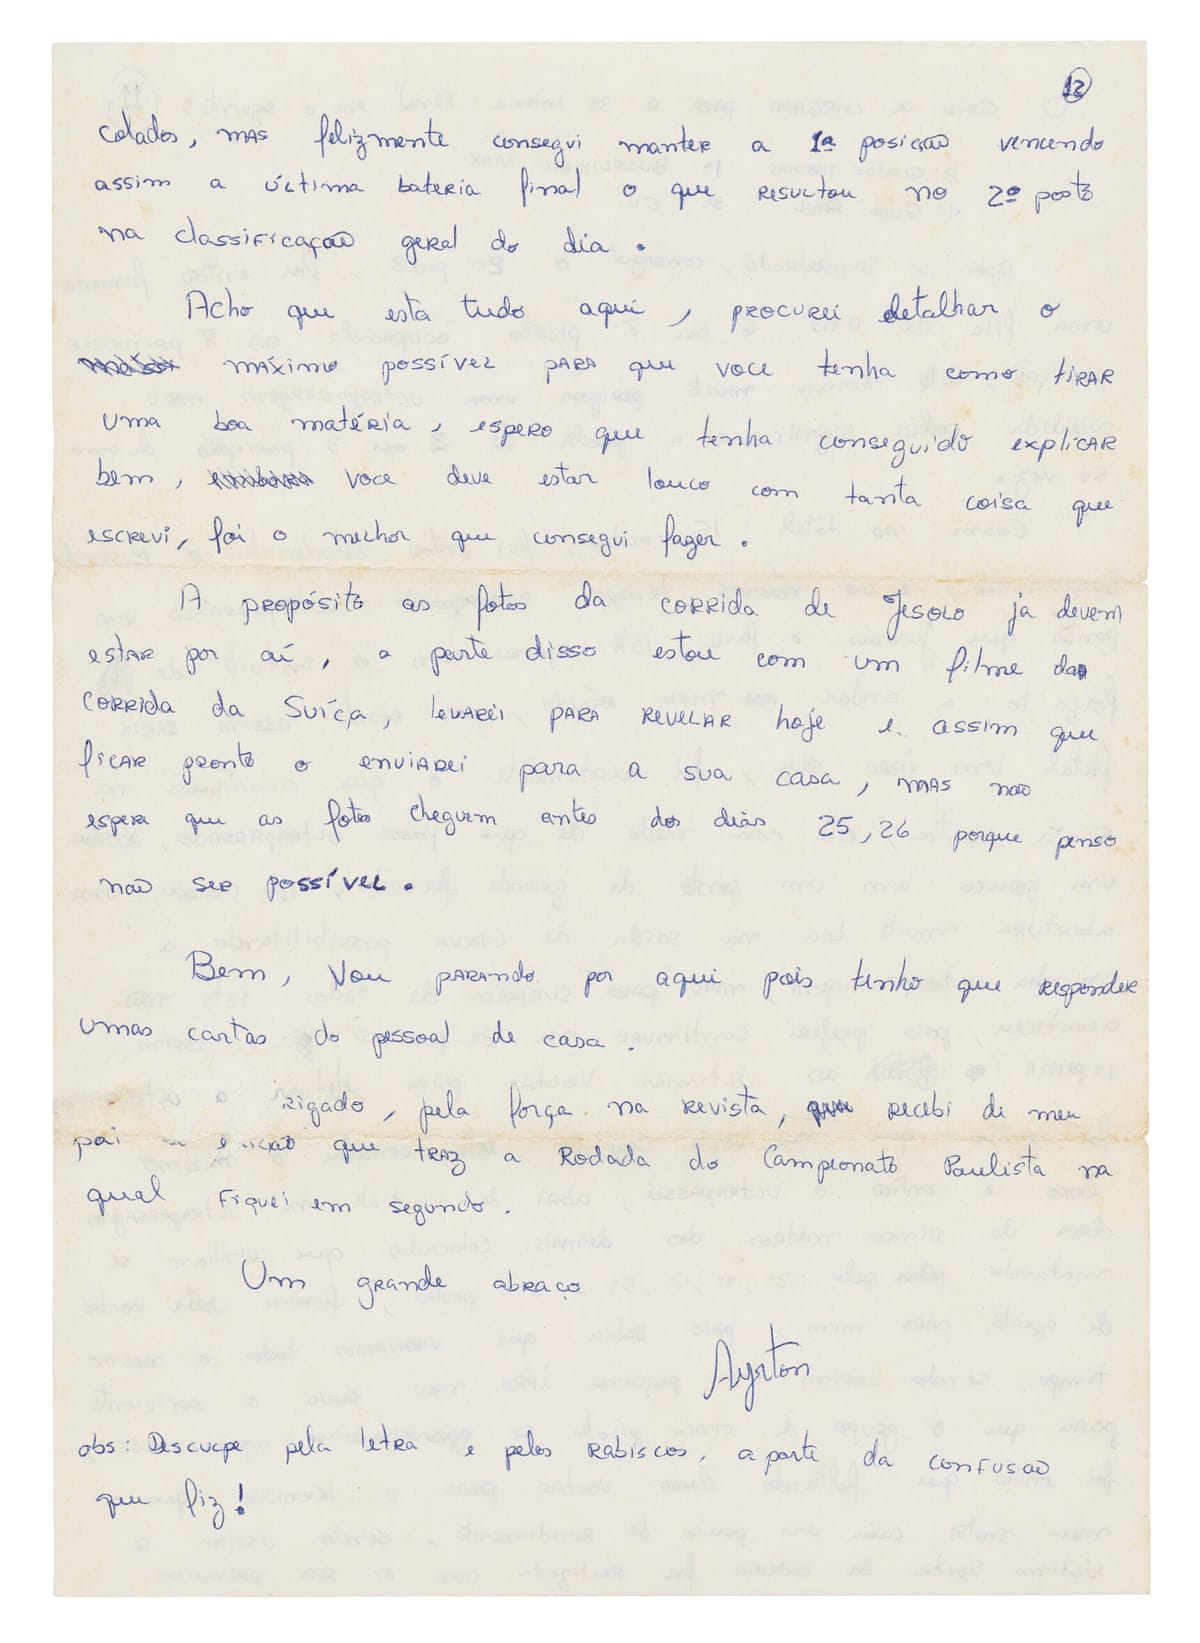 12
colados, mas felizmente consegui manter a 1ª posição vencendo
assim a última bateria final o que resultou no 2º posto
na classificação geral do dia.
Acho que esta tudo aqui, procurei detalhar o
máximo possível para que voce tenha como tirar
uma boa matéria, espero que tenha conseguido explicar
bem, voce deve estar louco com tanta coisa que
escrevi, foi o melhor que consegui fazer.
A propósito as fotos da corrida de Jesolo já devem
estar por aí, a parte disso estou com um filme da
corrida da Suíça, levarei para revelar hoje e assim que
ficar pronto o enviarei para a sua casa, mas não
espera que as fotos cheguem antes dos dias 25, 26 porque penso
não ser possível.
Bem, vou parando por aqui pois tenho que responder
umas cartas do pessoal de casa.
rigado, pela força na revista, recebi de meu
pai a edição que traz a Rodada do Campeonato Paulista na
qual fiquei em segundo.
Um grande abraço
Ayrton
obs: Desculpe pela letra e pelos rabiscos, a parte da confusão
que fiz!